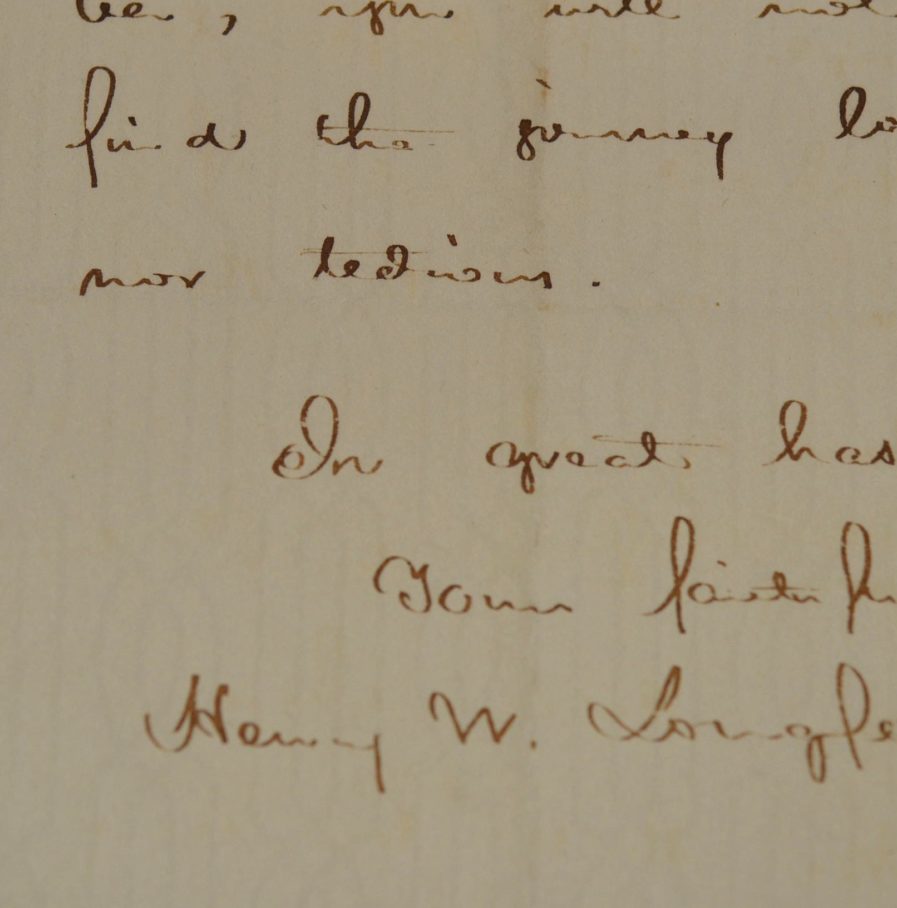 ber, you will not
find the journey lo
nor tedious.
In great has
Yours faithfu
Henry W. Longfe